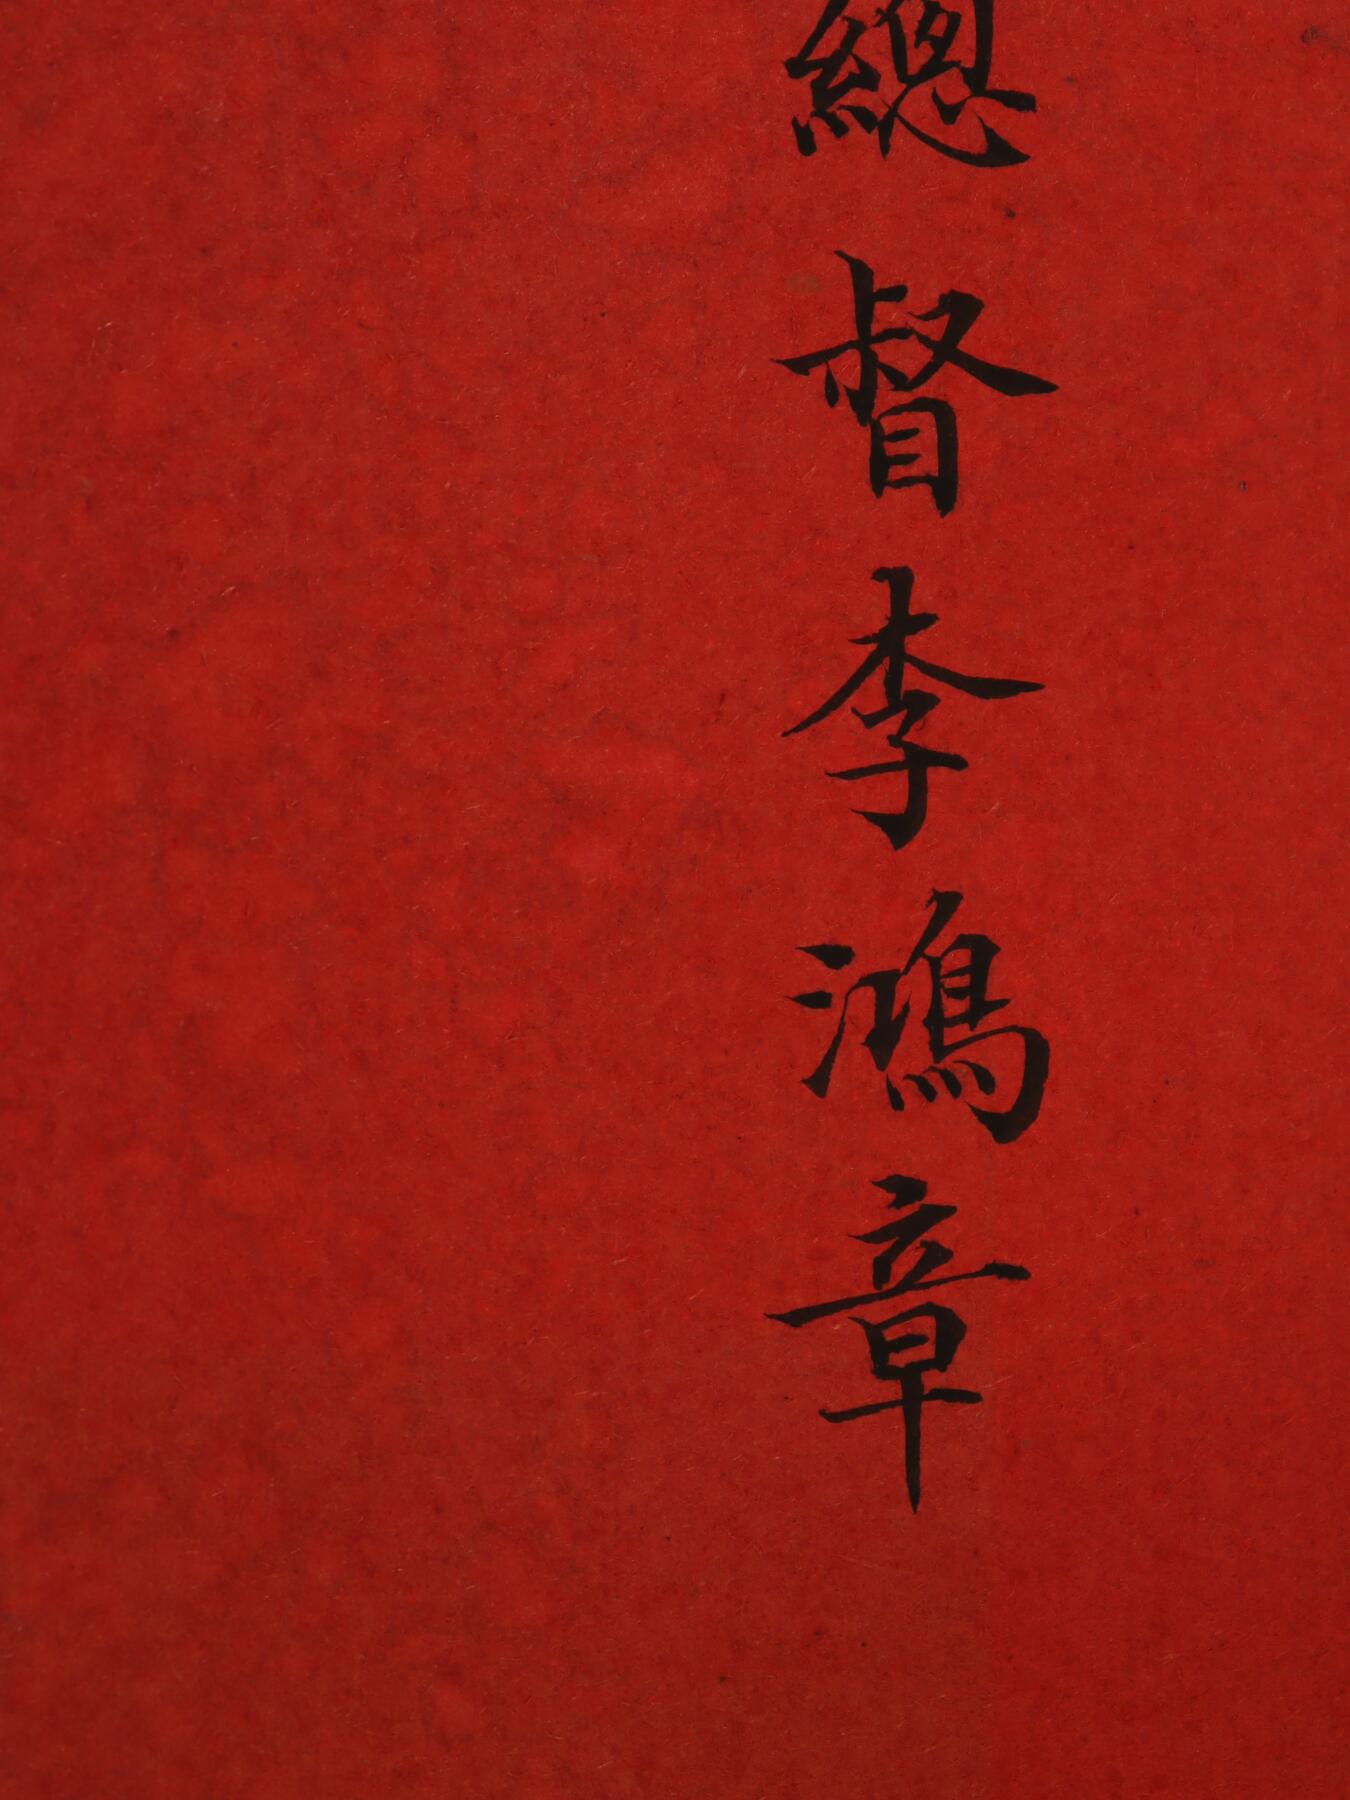 總督李鴻章